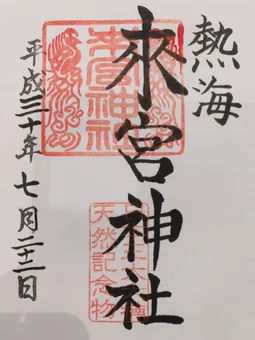 熱海
來宮神社
天然記念物
平成三十年七月二十二日